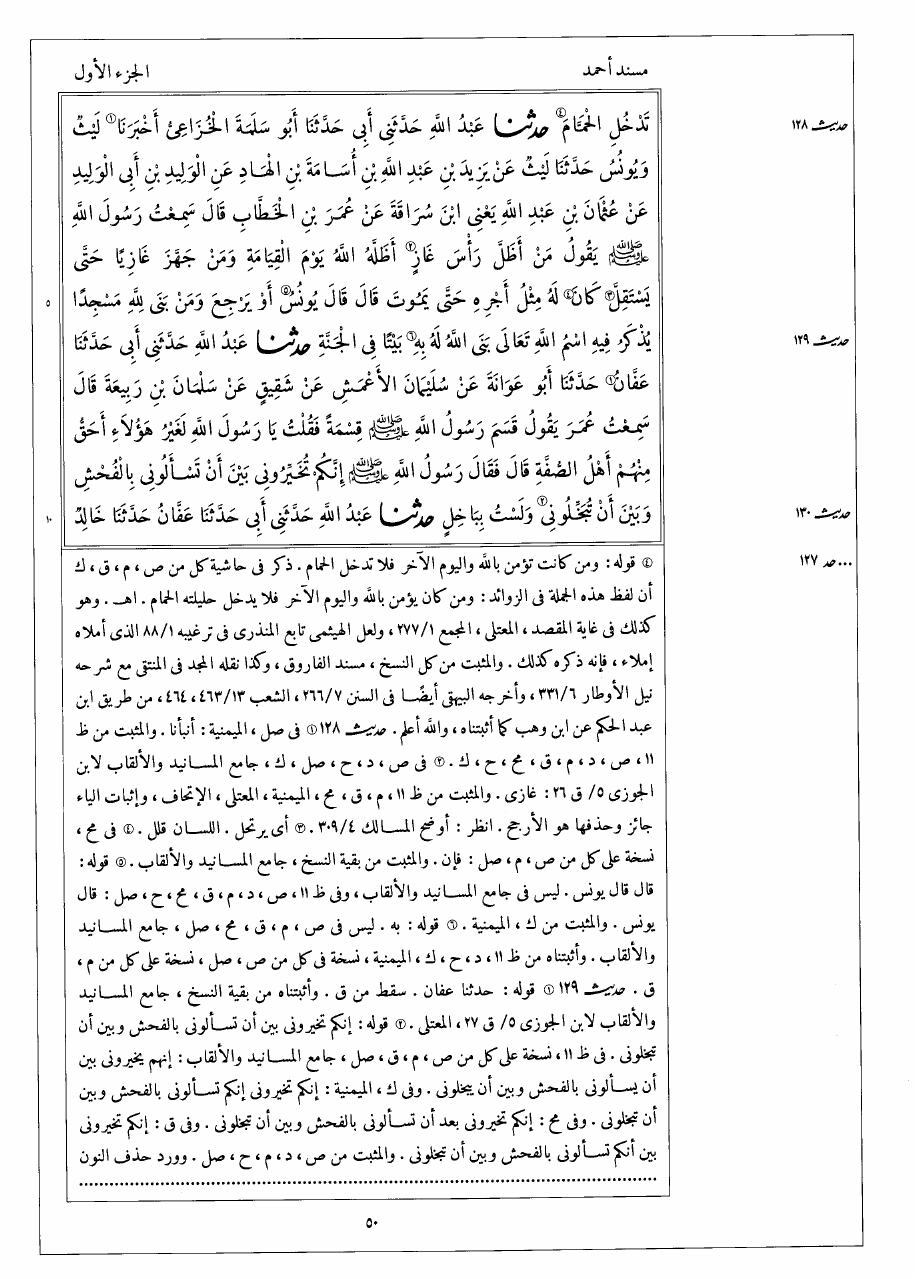 مسند أحمد الجزء الأول
تَدْخُلِ الْحَمَّامَ ④ حدثنا عَبْدُ اللَّهِ حَدَّثَنِى أَبِى حَدَّثَنَا أَبُو سَلَمَةَ الْخُزَاعِىُّ أَخْبَرَنَا ① لَيْثٌ
حديث ١٢٨
وَيُونُسُ حَدَّثَنَا لَيْثٌ عَنْ يَزِيدَ بْنِ عَبْدِ اللَّهِ بْنِ أُسَامَةَ بْنِ الْهَادِ عَنِ الْوَلِيدِ بْنِ أَبِى الْوَلِيدِ
عَنْ عُثْمَانَ بْنِ عَبْدِ اللَّهِ يَعْنِى ابْنَ سُرَاقَةَ عَنْ عُمَرَ بْنِ الْخَطَّابِ قَالَ سَمِعْتُ رَسُولَ اللَّهِ
ﷺ يَقُولُ مَنْ أَظَلَّ رَأْسَ غَازٍ ② أَظَلَّهُ اللَّهُ يَوْمَ الْقِيَامَةِ وَمَنْ جَهَّزَ غَازِيًا حَتَّى
يَسْتَقِلَّ ③ كَانَ ④ لَهُ مِثْلُ أَجْرِهِ حَتَّى يَمُوتَ قَالَ قَالَ يُونُسُ ⑤ أَوْ يَرْجِعَ وَمَنْ بَنَى لِلَّهِ مَسْجِدًا
٥
يُذْكَرُ فِيهِ اسْمُ اللَّهِ تَعَالَى بَنَى اللَّهُ لَهُ بِهِ ⑥ بَيْتًا فِى الْجَنَّةِ حدثنا عَبْدُ اللَّهِ حَدَّثَنِى أَبِى حَدَّثَنَا
حديث ١٢٩
عَفَّانُ ① حَدَّثَنَا أَبُو عَوَانَةَ عَنْ سُلَيْمَانَ الأَعْمَشِ عَنْ شَقِيقٍ عَنْ سَلْمَانَ بْنِ رَبِيعَةَ قَالَ
سَمِعْتُ عُمَرَ يَقُولُ قَسَمَ رَسُولُ اللَّهِ ﷺ قِسْمَةً فَقُلْتُ يَا رَسُولَ اللَّهِ لَغَيْرُ هَؤُلَاءِ أَحَقُّ
مِنْهُمْ أَهْلُ الصُّفَّةِ قَالَ فَقَالَ رَسُولُ اللَّهِ ﷺ إِنَّكُمْ تُخَيِّرُونِى بَيْنَ أَنْ تَسْأَلُونِى بِالْفُحْشِ
وَبَيْنَ أَنْ تُبَخِّلُونِى ② وَلَسْتُ بِبَاخِلٍ حدثنا عَبْدُ اللَّهِ حَدَّثَنِى أَبِى حَدَّثَنَا عَفَّانُ حَدَّثَنَا خَالِدٌ
حديث ١٣٠
١٠
④ قوله: ومن كانت تؤمن بالله واليوم الآخر فلا تدخل الحمام. ذكر فى حاشية كل من ص، م، ق، ك
...حد ١٢٧
أن لفظ هذه الجملة فى الزوائد: ومن كان يؤمن بالله واليوم الآخر فلا يدخل حليلته الحمام. اهـ. وهو
كذلك فى غاية المقصد، المعتلى، المجمع ٢٧٧/١، ولعل الهيثمى تابع المنذرى فى ترغيبه ٨٨/١ الذى أملاه
إملاء، فإنه ذكره كذلك. والمثبت من كل النسخ، مسند الفاروق، وكذا نقله المجد فى المنتقى مع شرحه
نيل الأوطار ٣٣١/٦، وأخرجه البيهقى أيضًا فى السنن ٢٦٦/٧، الشعب ٤٦٣/١٣، ٤٦٤، من طريق ابن
عبد الحكم عن ابن وهب كما أثبتناه، والله أعلم. حديث ١٢٨ ① فى صل، الميمنية: أنبأنا. والمثبت من ظ
١١، ص، د، م، ق، مح، ح، ك. ② فى ص، د، ح، صل، ك، جامع المسانيد والألقاب لابن
الجوزى ٥/ ق ٢٦: غازى. والمثبت من ظ ١١، م، ق، مح، الميمنية، المعتلى، الإتحاف، وإثبات الياء
جائز وحذفها هو الأرجح. انظر: أوضح المسالك ٣٠٩/٤. ③ أى يرتحل. اللسان قلل. ④ فى مح،
نسخة على كل من ص، م، صل: فإن. والمثبت من بقية النسخ، جامع المسانيد والألقاب. ⑤ قوله:
قال قال يونس. ليس فى جامع المسانيد والألقاب، وفى ظ ١١، ص، د، م، ق، مح، ح، صل: قال
يونس. والمثبت من ك، الميمنية. ⑥ قوله: به. ليس فى ص، م، ق، مح، صل، جامع المسانيد
والألقاب. وأثبتناه من ظ ١١، د، ح، ك، الميمنية، نسخة فى كل من ص، صل، نسخة على كل من م،
ق. حديث ١٢٩ ① قوله: حدثنا عفان. سقط من ق. وأثبتناه من بقية النسخ، جامع المسانيد
والألقاب لابن الجوزى ٥/ ق ٢٧، المعتلى. ② قوله: إنكم تخيرونى بين أن تسألونى بالفحش وبين أن
تبخلونى. فى ظ ١١، نسخة على كل من ص، م، ق، صل، جامع المسانيد والألقاب: إنهم يخيرونى بين
أن يسألونى بالفحش وبين أن يبخلونى. وفى ك، الميمنية: إنكم تخيرونى إنكم تسألونى بالفحش وبين
أن تبخلونى. وفى مح: إنكم تخيرونى بعد أن تسألونى بالفحش وبين أن تبخلونى. وفى ق: إنكم تخيرونى
بين أنكم تسألونى بالفحش وبين أن تبخلونى. والمثبت من ص، د، م، ح، صل. وورد حذف النون
٥٠